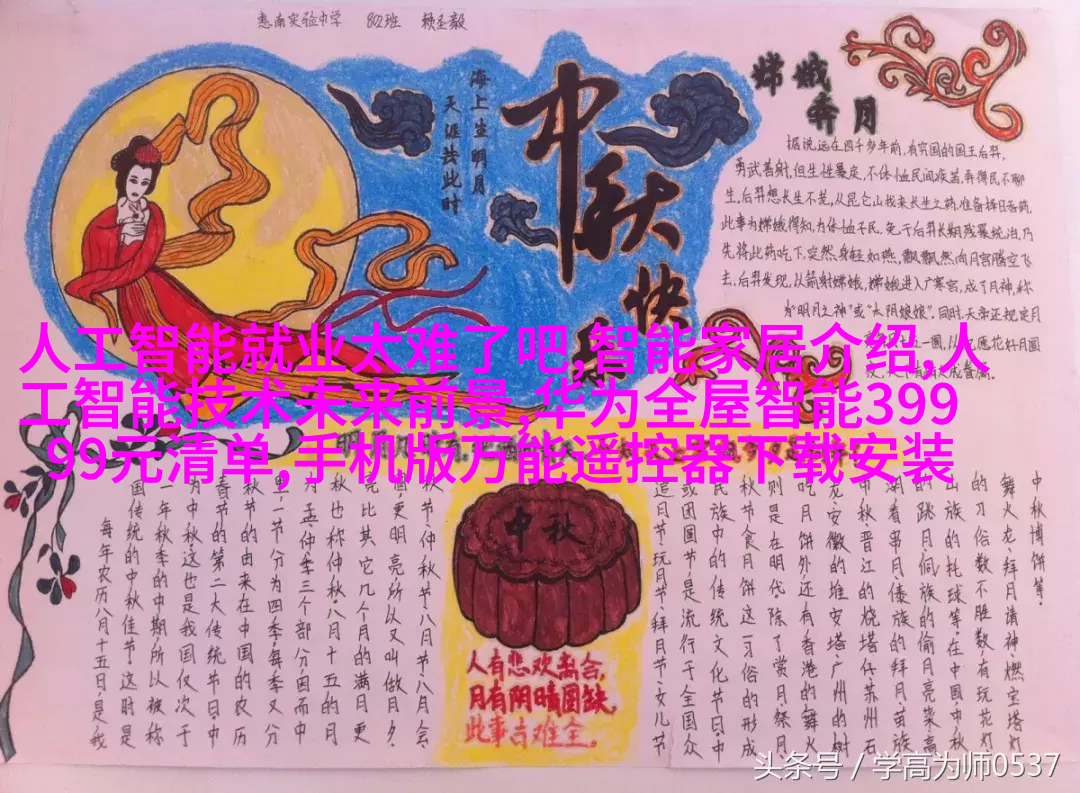 惠南实验中学 802班 赖圣毅
海上生明月
天涯共此时
中秋快乐
嫦娥
奔月
据说,远在四千多年前,有穷国的国王后羿,
勇武善射,但生性暴戾,不体恤民间疾苦,弄得民不聊
生,后羿想长生不老,从昆仑山找来长生之药,准备择日吞药,
此事为嫦娥得知,为体恤平民,免于后羿长期残暴统治,乃
先将此药吃下,突然身轻如燕,飘飘然向月宫腾空飞
去,后羿发现,以箭射嫦娥,嫦娥进入广寒宫,成了月神,称
为"明月之神"或"太阴娘娘"。同时,天帝还规定月
人工智能就业太难了吧,智能家居介绍,人
工智能技术未来前景,华为全屋智能399
99元清单,手机版万能遥控器下载安装
每年农历八月十五日,是我
国传统的中秋佳节。这时是
年秋季的中期,所以被称
为中秋。这也是我国仅次于
春节的第二大传统节日。中
秋节的由来在中国的农历
里,一节分为四季,每季又分
为孟、仲、季三个部分,因而中
秋也称仲秋。八月十五的月
亮比其它几个月的满月更
圆,更明亮,所以又叫做月夕
秋节、仲秋节、八月节、八月会
中秋
人有悲欢离合,
月有阴晴圆缺,
此事古难全。
追月节、玩月节、拜月节、女儿节
或团圆节,是流行于全国众
民族中的传统文化节日,中
秋节食月饼这一习俗的形成
则是在明代。除了赏月、祭月
吃月饼外,还有香港的舞火
龙、安徽的堆宝塔、广州的树
中秋、晋江的烧塔仔、苏州石
湖看串月、傣族的拜月、苗族
的跳月、侗族的偷月亮菜、高
山族的托球等,在中国,中秋
的习俗数不胜数,有玩花灯
舞火龙、拜月请神、燃宝塔灯
中秋博饼等。
头条号 / 学高为师0537